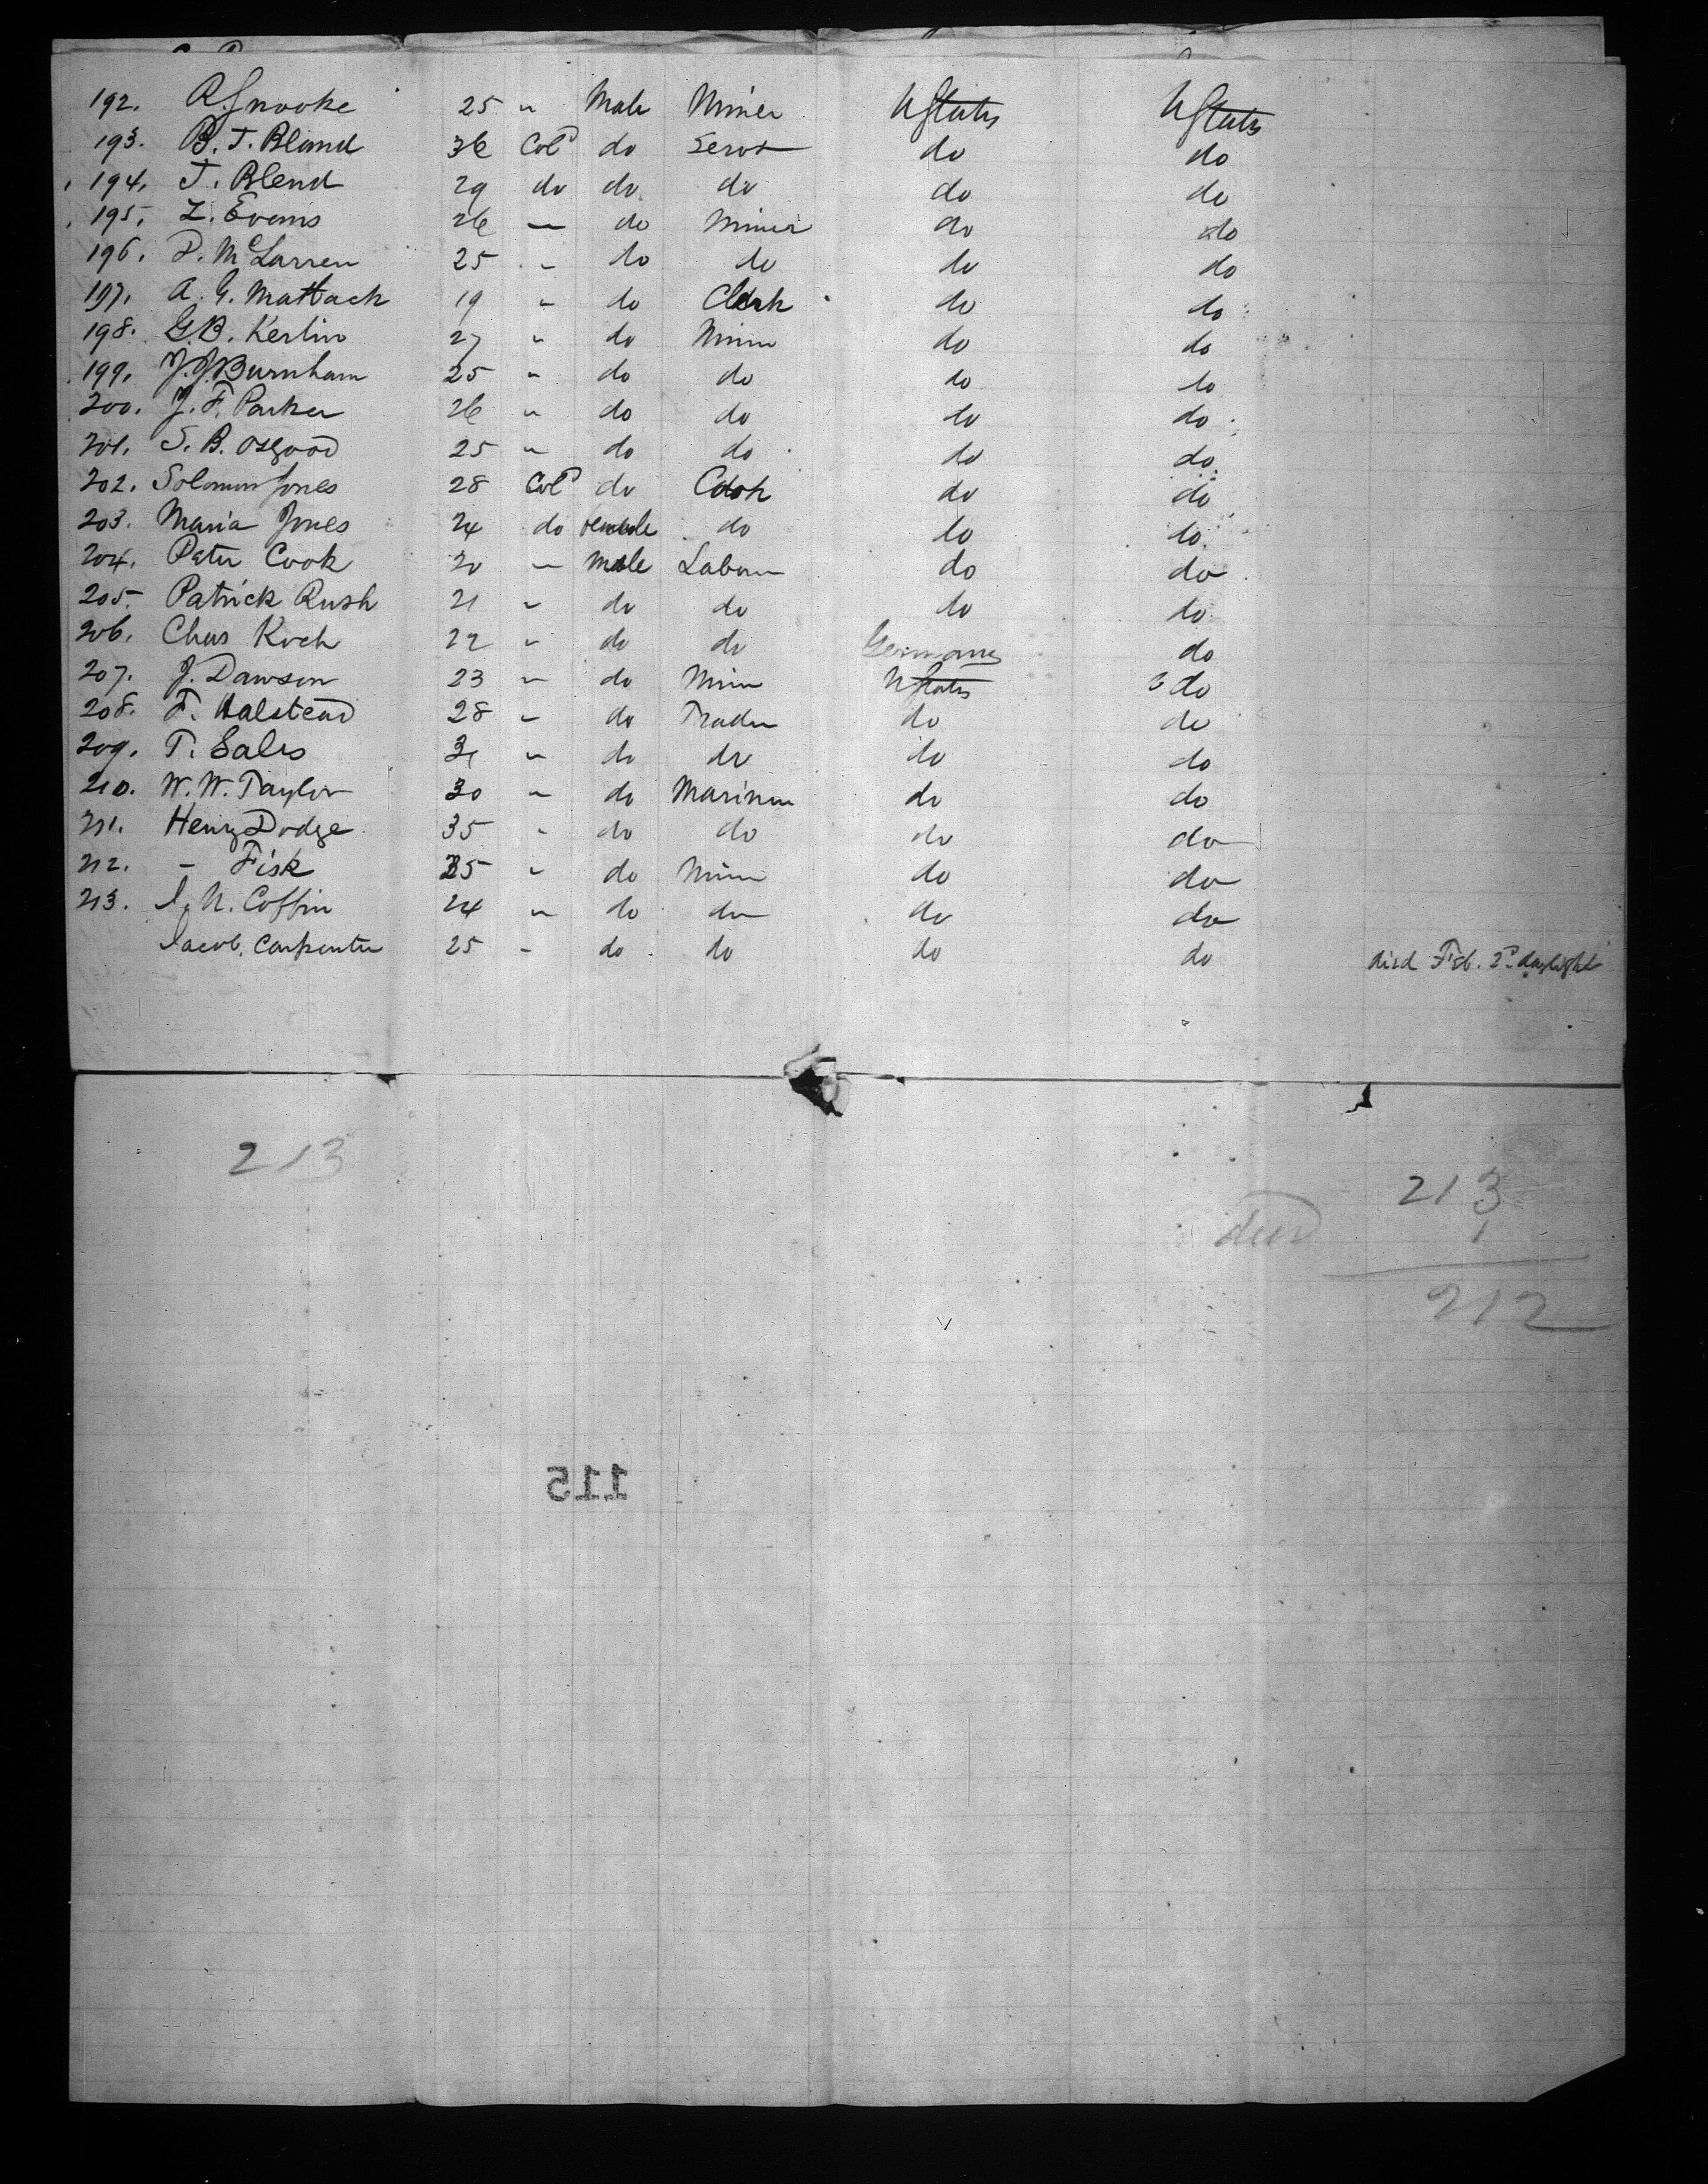 192. R. Snooke 25 " Male Miner UStates UStates
193. B. T. Bland 36 Cold do Servt do do
194. J. Blend 29 do do do do do
195. Z. Evans 26 — do Miner do do
196. D. McLarren 25 - do do do do
197. A. G. Mattack 19 " do Clerk do do
198. G. B. Kerlin 27 " do Miner do do
199. J. J. Burnham 25 " do do do do
200. J. F. Parker 26 " do do do do
201. S. B. Osgood 25 " do do do do
202. Solomon Jones 28 Cold do Cook do do
203. Maria Jones 24 do female do do do
204. Peter Cook 20 — male Laborer do do
205. Patrick Rush 21 - do do do do
206. Chas Koch 22 - do do Germany do
207. J. Dawson 23 — do Miner UStates do
208. F. Halstead 28 - do Trader do do
209. T. Sales 31 " do do do do
210. W. W. Taylor 30 - do Mariner do do
211. Henry Dodge 35 - do do do do
212. - Fisk 25 - do Miner do do
213. I. N. Coffin 24 " do do do do
Jacob. Carpenter 25 - do do do do died Feb. 2d daylight
213
213
died 1
212
115